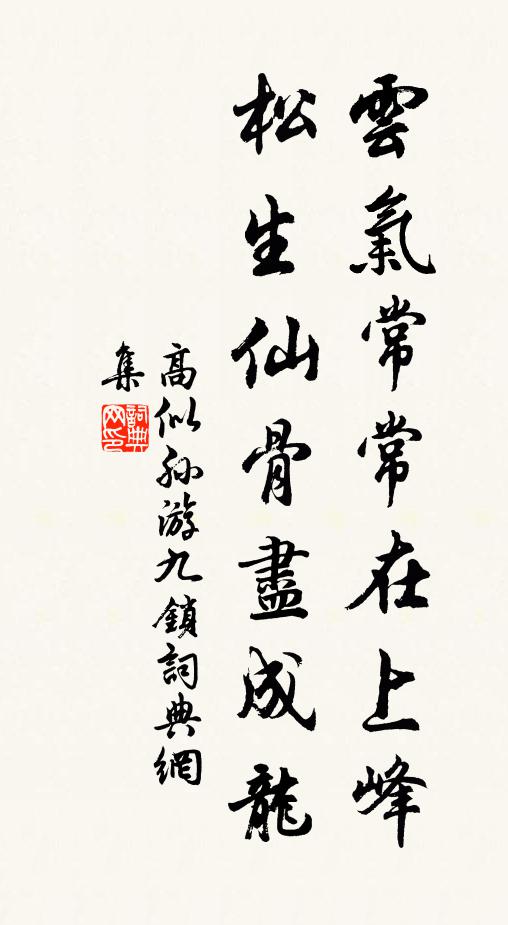 雲氣常常在上峰
松生仙骨盡成龍
高似孫游九鎖詞典網
集
詞典网印